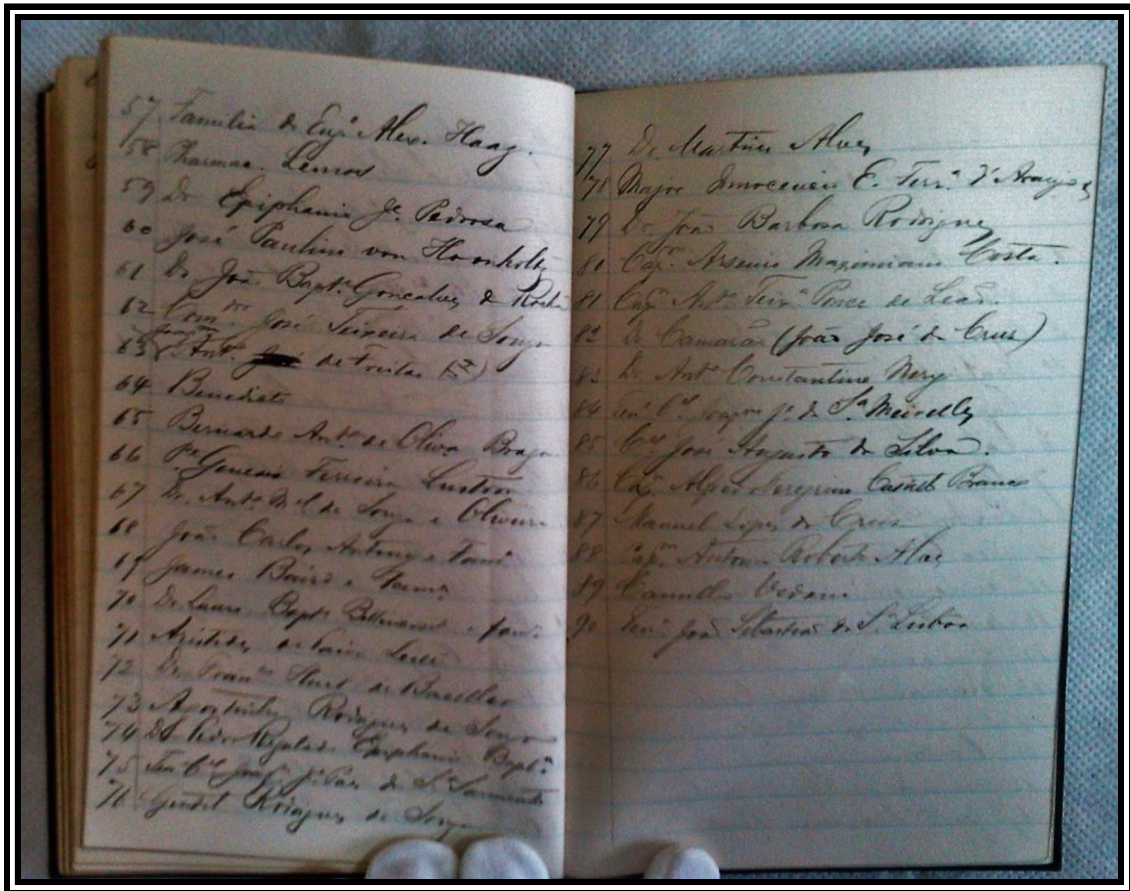 57 Familia do Eng.º Alex. Haag.
58 Pharmac. Lemos
59 Dr. Epiphanio J.e Pedrosa
60 José Paulino von Hoonholtz
61 Dr. João Bapt.ª Gonçalves da Rocha
62 Com.dor José Teixeira de Souza
63 Ant.º de Freitas
64 Benedicto
65 Bernardo Ant.º de Oliv.ª Braga
66 P.e Ferreira Lustosa
67 Dr. Ant.º M.el de Souza e Oliveira
68 João Carlos Antony e fam.ª
69 James Baird e fam.ª
70 Dr. Lauro Bapt.ª Bittencourt e fam.ª
71 Aristides
72 Dr. Fran.co de Barcellos
73 Rodrigues de Souza
74 Dr. Pedro Regalado Epiphanio Bapt.ª
75 Ten. C.el de S.ª Sarmento
76 Gentil Rodrigues de Souza
77 Dr. Martins Alves
78 Major Innocencio E. Ferr.ª d'Araujo
79 Dr. João Barbosa Rodrigues
80 Cap.m Arsenio Costa.
81 Cap.m Ant.º Ponce de Leão.
82 Dr. Camarão (João José da Cruz)
83 Dr. Ant.º Constantino Nery
84 Ten. C.el Joaq.m J.e de S.ª Meirelles
85 C.el José Augusto da Silva.
86 Cap.m Alfredo Castello Branco
87 Manuel Lopes da Cruz
88 Cap.m Antonio Roberto Alves
89 Camillo
90 Ten. João Sebastião de S.ª Lisboa